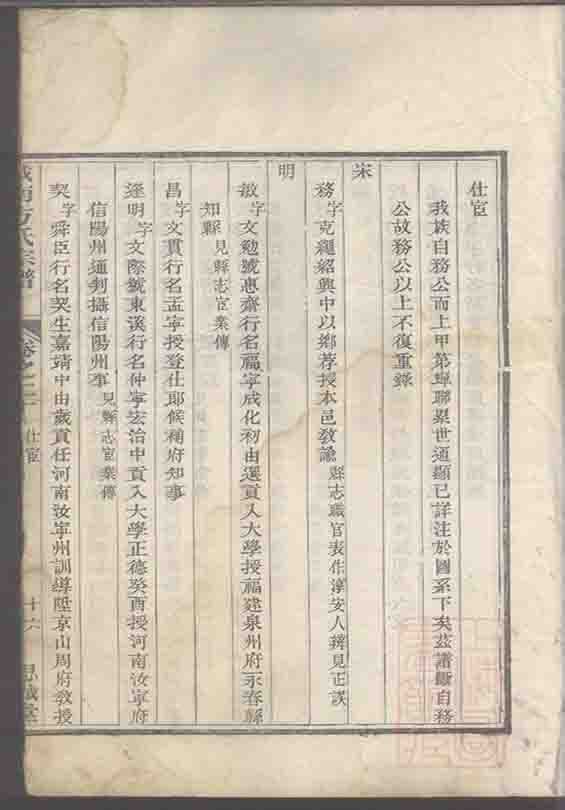 仕宦
我族自務公而上甲第蟬聯累世通顯已詳注於國系下矣茲譜斷自務
公故務公以上不復重錄
宋
務字克繩紹興中以鄉荐授本邑敎諭縣志職官表作淳安人辨見正誤
明
敏字文勉號惠齋行名福寧成化初由選貢入大學授福建泉州府永春縣
知縣見縣志宦業傳
昌字文貫行名孟寧授登仕郎候補府知事
逵明字文際號東溪行名仲寧宏治中貢入大學正德癸酉授河南汝寧府
信陽州通判攝信陽州事見縣志宦業傳
契字舜臣行名契生嘉靖中由歲貢任河南汝寧州訓導陞京山周府敎授
城南方氏宗譜 卷之二 仕宦 十六 思誠堂